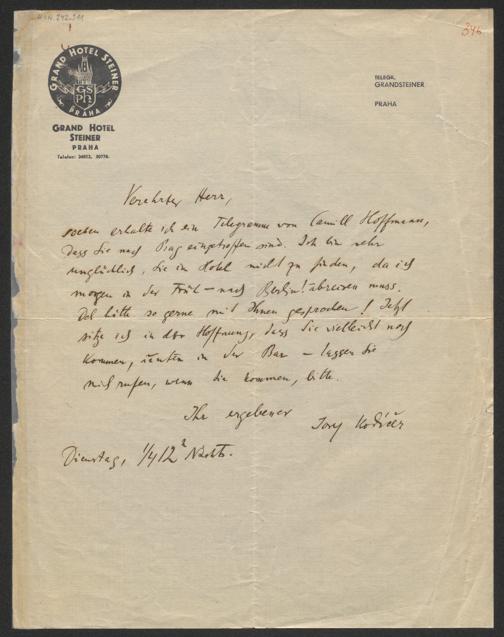 346
GRAND HOTEL STEINER
GSPH
PRAHA
GRAND HOTEL
STEINER
PRAHA
TELEGR.
GRANDSTEINER
PRAHA
Verehrter Herr,
soeben erhalte ich ein Telegramm von Camill Hoffmann,
dass Sie nach Prag eingetroffen sind. Ich bin sehr
unglücklich, Sie im Hotel nicht zu finden, da ich
morgen in der Früh – nach Berlin! abreisen muss.
Ich hätte so gerne mit Ihnen gesprochen! Jetzt
sitze ich in der Hoffnung, dass Sie vielleicht noch
kommen, unten in der Bar – lassen Sie
mich rufen, wenn Sie kommen, bitte.
Ihr ergebener
Dienstag, 1/4 12h Nachts.